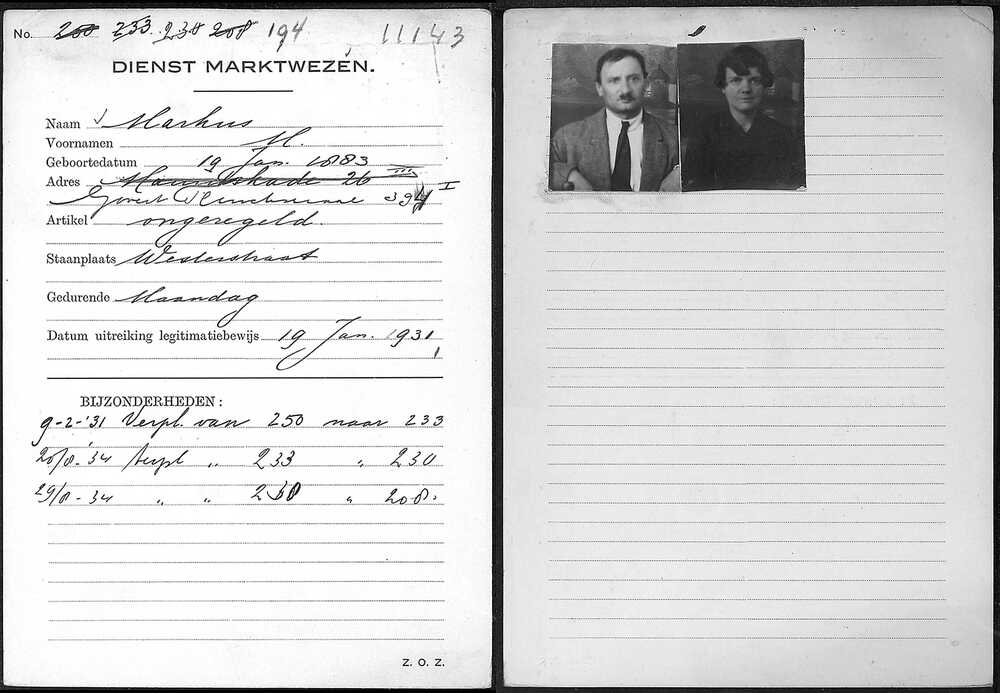 No. 250 233 230 208 194 11143
DIENST MARKTWEZEN.
Naam Markus
Voornamen M.
Geboortedatum 19 Jan. 1883
Adres Mauritskade 26 III
Govert Flinckstraat I
Artikel ongeregeld.
Staanplaats Westerstraat
Gedurende Maandag
Datum uitreiking legitimatiebewijs 19 Jan. 1931
BIJZONDERHEDEN:
9-2-'31 Verpl. van 250 naar 233
20/8-'34 Verpl „ 233 „ 230
29/8-34 „ „ 230 „ 208.
Z. O. Z.